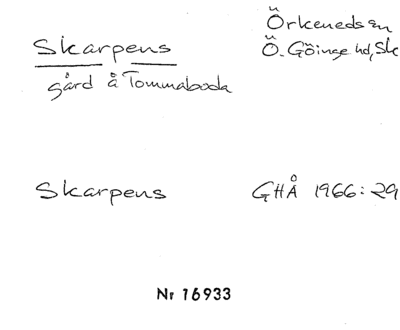 Skarpens
Örkeneds sn
Ö. Göinge hd, Sk
gård å Tommaboda
Skarpens
GHÅ 1966:29
Nr 16933